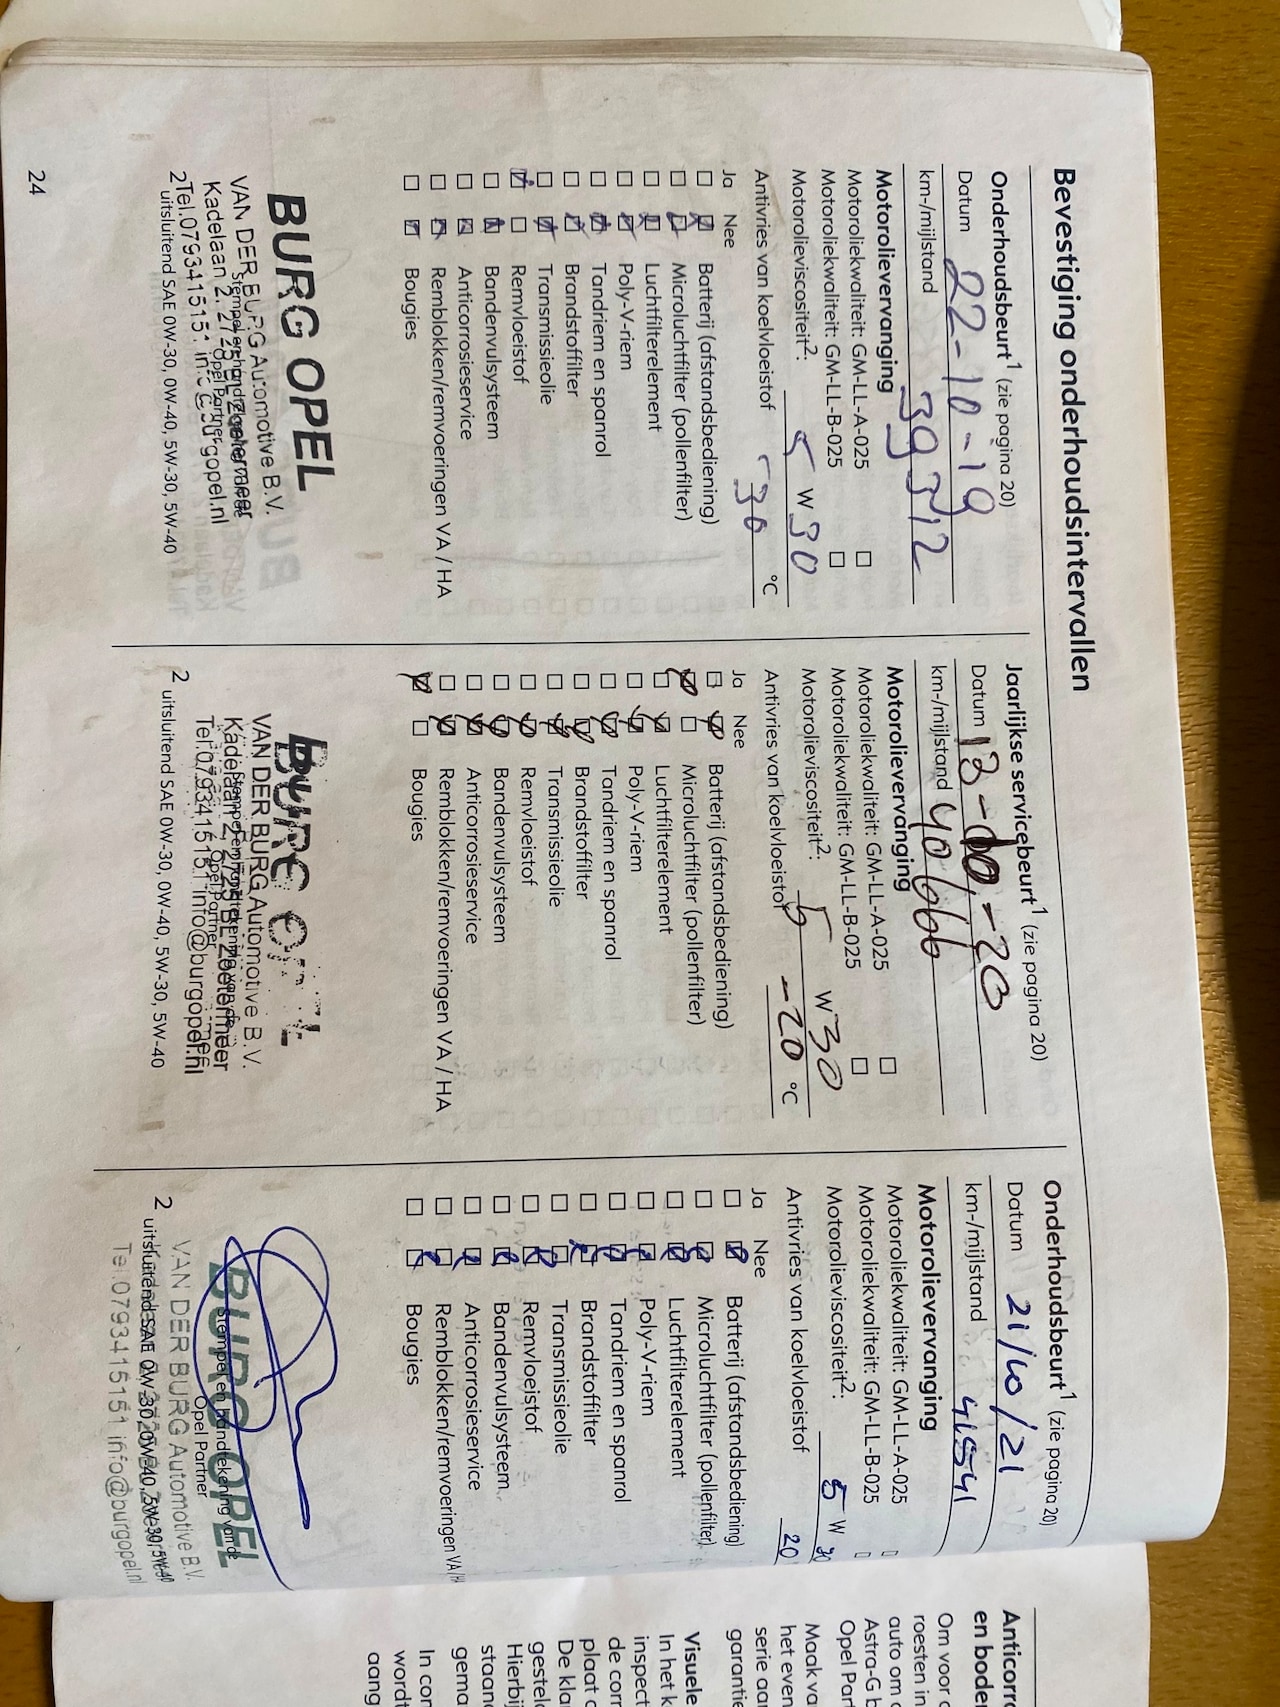 Bevestiging onderhoudsintervallen
Onderhoudsbeurt¹ (zie pagina 20)
Datum 22-10-19
km-/mijlstand 39312
Motorolievervanging
Motoroliekwaliteit: GM-LL-A-025 □
Motoroliekwaliteit: GM-LL-B-025 □
Motorolieviscositeit²: 5 W 30
Antivries van koelvloeistof -30 °C
Ja Nee
Batterij (afstandsbediening)
Microluchtfilter (pollenfilter)
Luchtfilterelement
Poly-V-riem
Tandriem en spanrol
Brandstoffilter
Transmissieolie
Remvloeistof
Bandenvulsysteem
Anticorrosieservice
Remblokken/remvoeringen VA / HA
Bougies
BURG OPEL
VAN DER BURG Automotive B.V.
Kadelaan 2. Zoetermeer
Opel Partner
Tel.0793415151 burgopel.nl
2 uitsluitend SAE 0W-30, 0W-40, 5W-30, 5W-40
24
Jaarlijkse servicebeurt¹ (zie pagina 20)
Datum 13-10-20
km-/mijlstand 40666
Motorolievervanging
Motoroliekwaliteit: GM-LL-A-025 □
Motoroliekwaliteit: GM-LL-B-025 □
Motorolieviscositeit²: 5 W 30
Antivries van koelvloeistof -20 °C
Ja Nee
Batterij (afstandsbediening)
Microluchtfilter (pollenfilter)
Luchtfilterelement
Poly-V-riem
Tandriem en spanrol
Brandstoffilter
Transmissieolie
Remvloeistof
Bandenvulsysteem
Anticorrosieservice
Remblokken/remvoeringen VA / HA
Bougies
BURG OPEL
VAN DER BURG Automotive B.V.
Kadelaan 2, 2725 BE Zoetermeer
Opel Partner
Tel.0793415151 info@burgopel.nl
2 uitsluitend SAE 0W-30, 0W-40, 5W-30, 5W-40
Onderhoudsbeurt¹ (zie pagina 20)
Datum 21/10/21
km-/mijlstand 41541
Motorolievervanging
Motoroliekwaliteit: GM-LL-A-025 □
Motoroliekwaliteit: GM-LL-B-025 □
Motorolieviscositeit²: 5 W 30
Antivries van koelvloeistof 20
Ja Nee
Batterij (afstandsbediening)
Microluchtfilter (pollenfilter)
Luchtfilterelement
Poly-V-riem
Tandriem en spanrol
Brandstoffilter
Transmissieolie
Remvloeistof
Bandenvulsysteem
Anticorrosieservice
Remblokken/remvoeringen VA
Bougies
BURG OPEL
Stempel en handtekening van de
Opel Partner
VAN DER BURG Automotive B.V.
2 uitsluitend SAE 0W-30, 0W-40, 5W-30, 5W-40
Tel 0793415151 info@burgopel.nl
Anticorro
en boder
Om voor
roesten in
auto om
Astra-G b
Opel Par
Maak va
het even
serie aa
garantie
Visuele
In het k
inspect
de corr
plaat
De kla
gestel
Hierbij
stand
gema
In con
wordt
aang